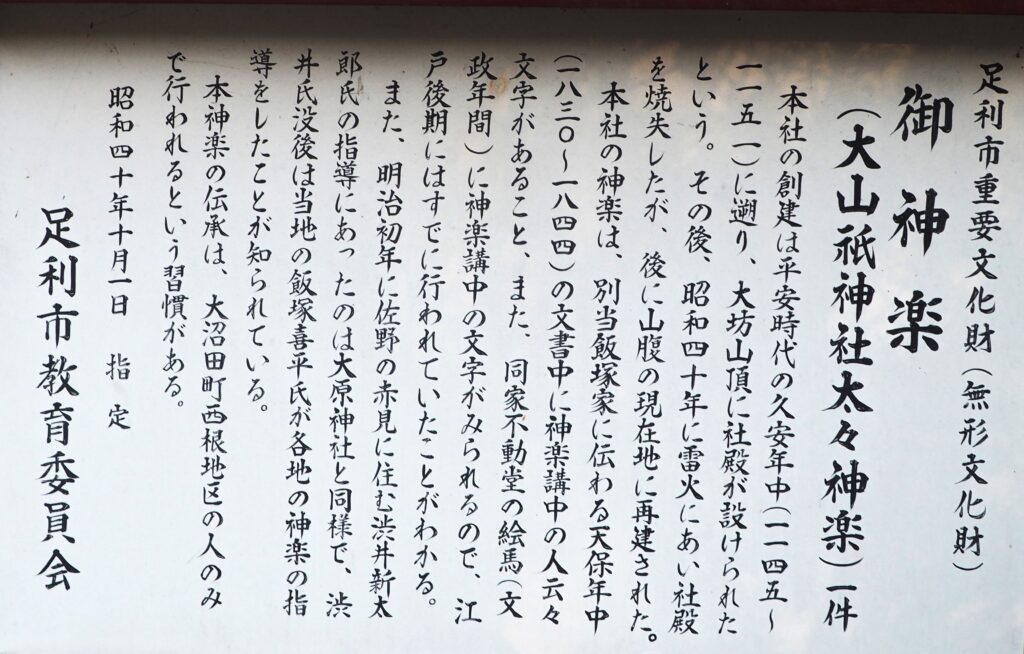 足利市重要文化財（無形文化財）
御神楽
（大山祇神社太々神楽）一件
本社の創建は平安時代の久安年中（一一四五～
一一五一）に遡り、大坊山頂に社殿が設けられた
という。その後、昭和四十年に雷火にあい社殿
を焼失したが、後に山腹の現在地に再建された。
本社の神楽は、別当飯塚家に伝わる天保年中
（一八三〇～一八四四）の文書中に神楽講中の人云々
文字があること、また、同家不動堂の絵馬（文
政年間）に神楽講中の文字がみられるので、江
戸後期にはすでに行われていたことがわかる。
また、明治初年に佐野の赤見に住む渋井新太
郎氏の指導にあったのは大原神社と同様で、渋
井氏没後は当地の飯塚喜平氏が各地の神楽の指
導をしたことが知られている。
本神楽の伝承は、大沼田町西根地区の人のみ
で行われるという習慣がある。
昭和四十年十月一日　指　定
足利市教育委員会